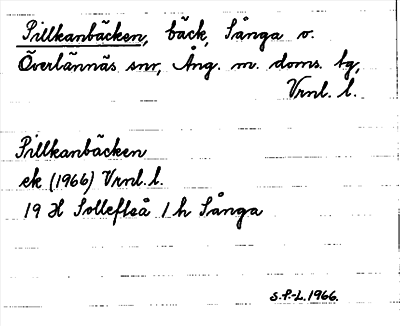 Pillkanbäcken, bäck, Sånga o.
Överlännäs snr, Ång. m. doms. tg,
Vrnl. l.
Pillkanbäcken
ek (1966) Vrnl. l.
19 H Sollefteå 1 h Sånga
S.P.-L. 1966.